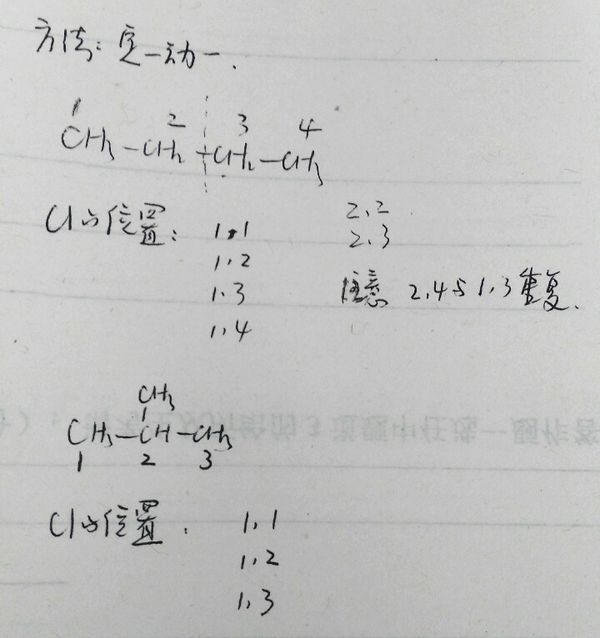 方法：定一动一.
1 2 3 4
CH₃-CH₂-CH₂-CH₃
Cl的位置： 1,1 2,2
1,2 2,3
1,3 注意 2,4与1,3重复.
1,4
CH₃
CH₃-CH-CH₃
1 2 3
Cl的位置. 1,1
1,2
1,3